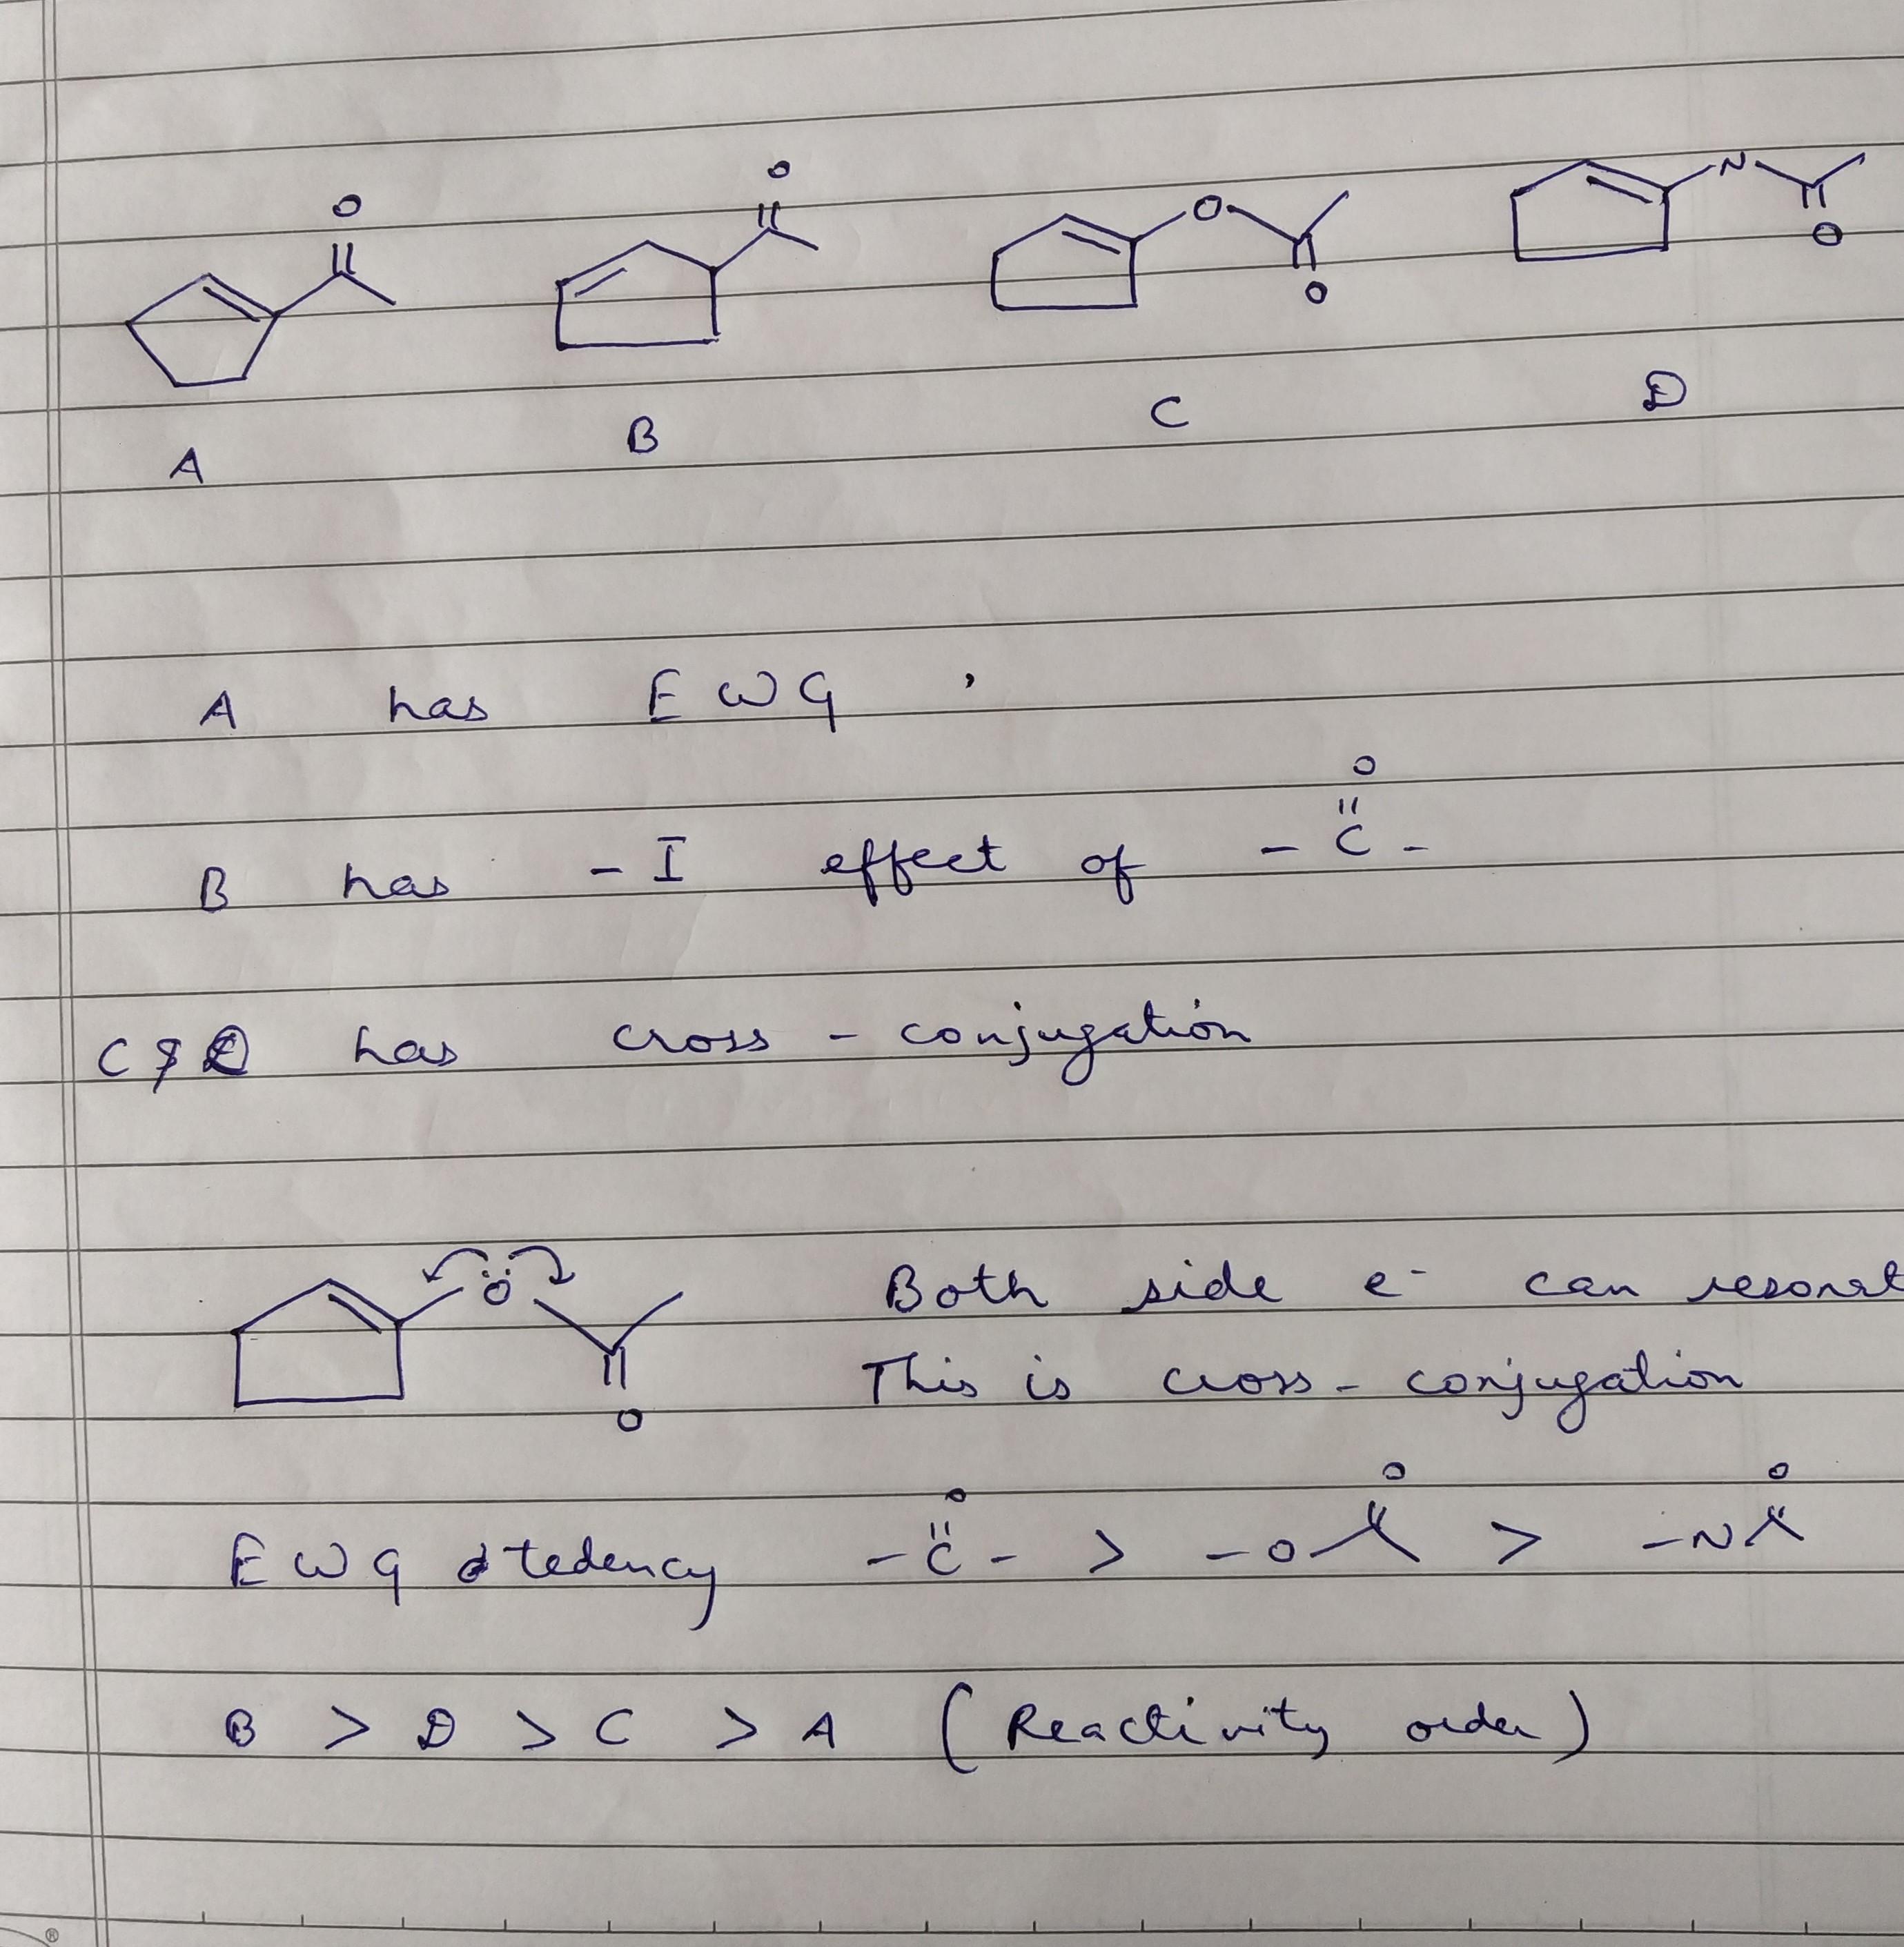 O O O N
O
O
A B C D
A has EWG,
O
B has -I effect of - C -
C & D has cross-conjugation
O Both side e- can resonat
This is cross-conjugation
O
O O O
EWG tedency -C- > -O > -N
B > D > C > A (Reactivity order)
®